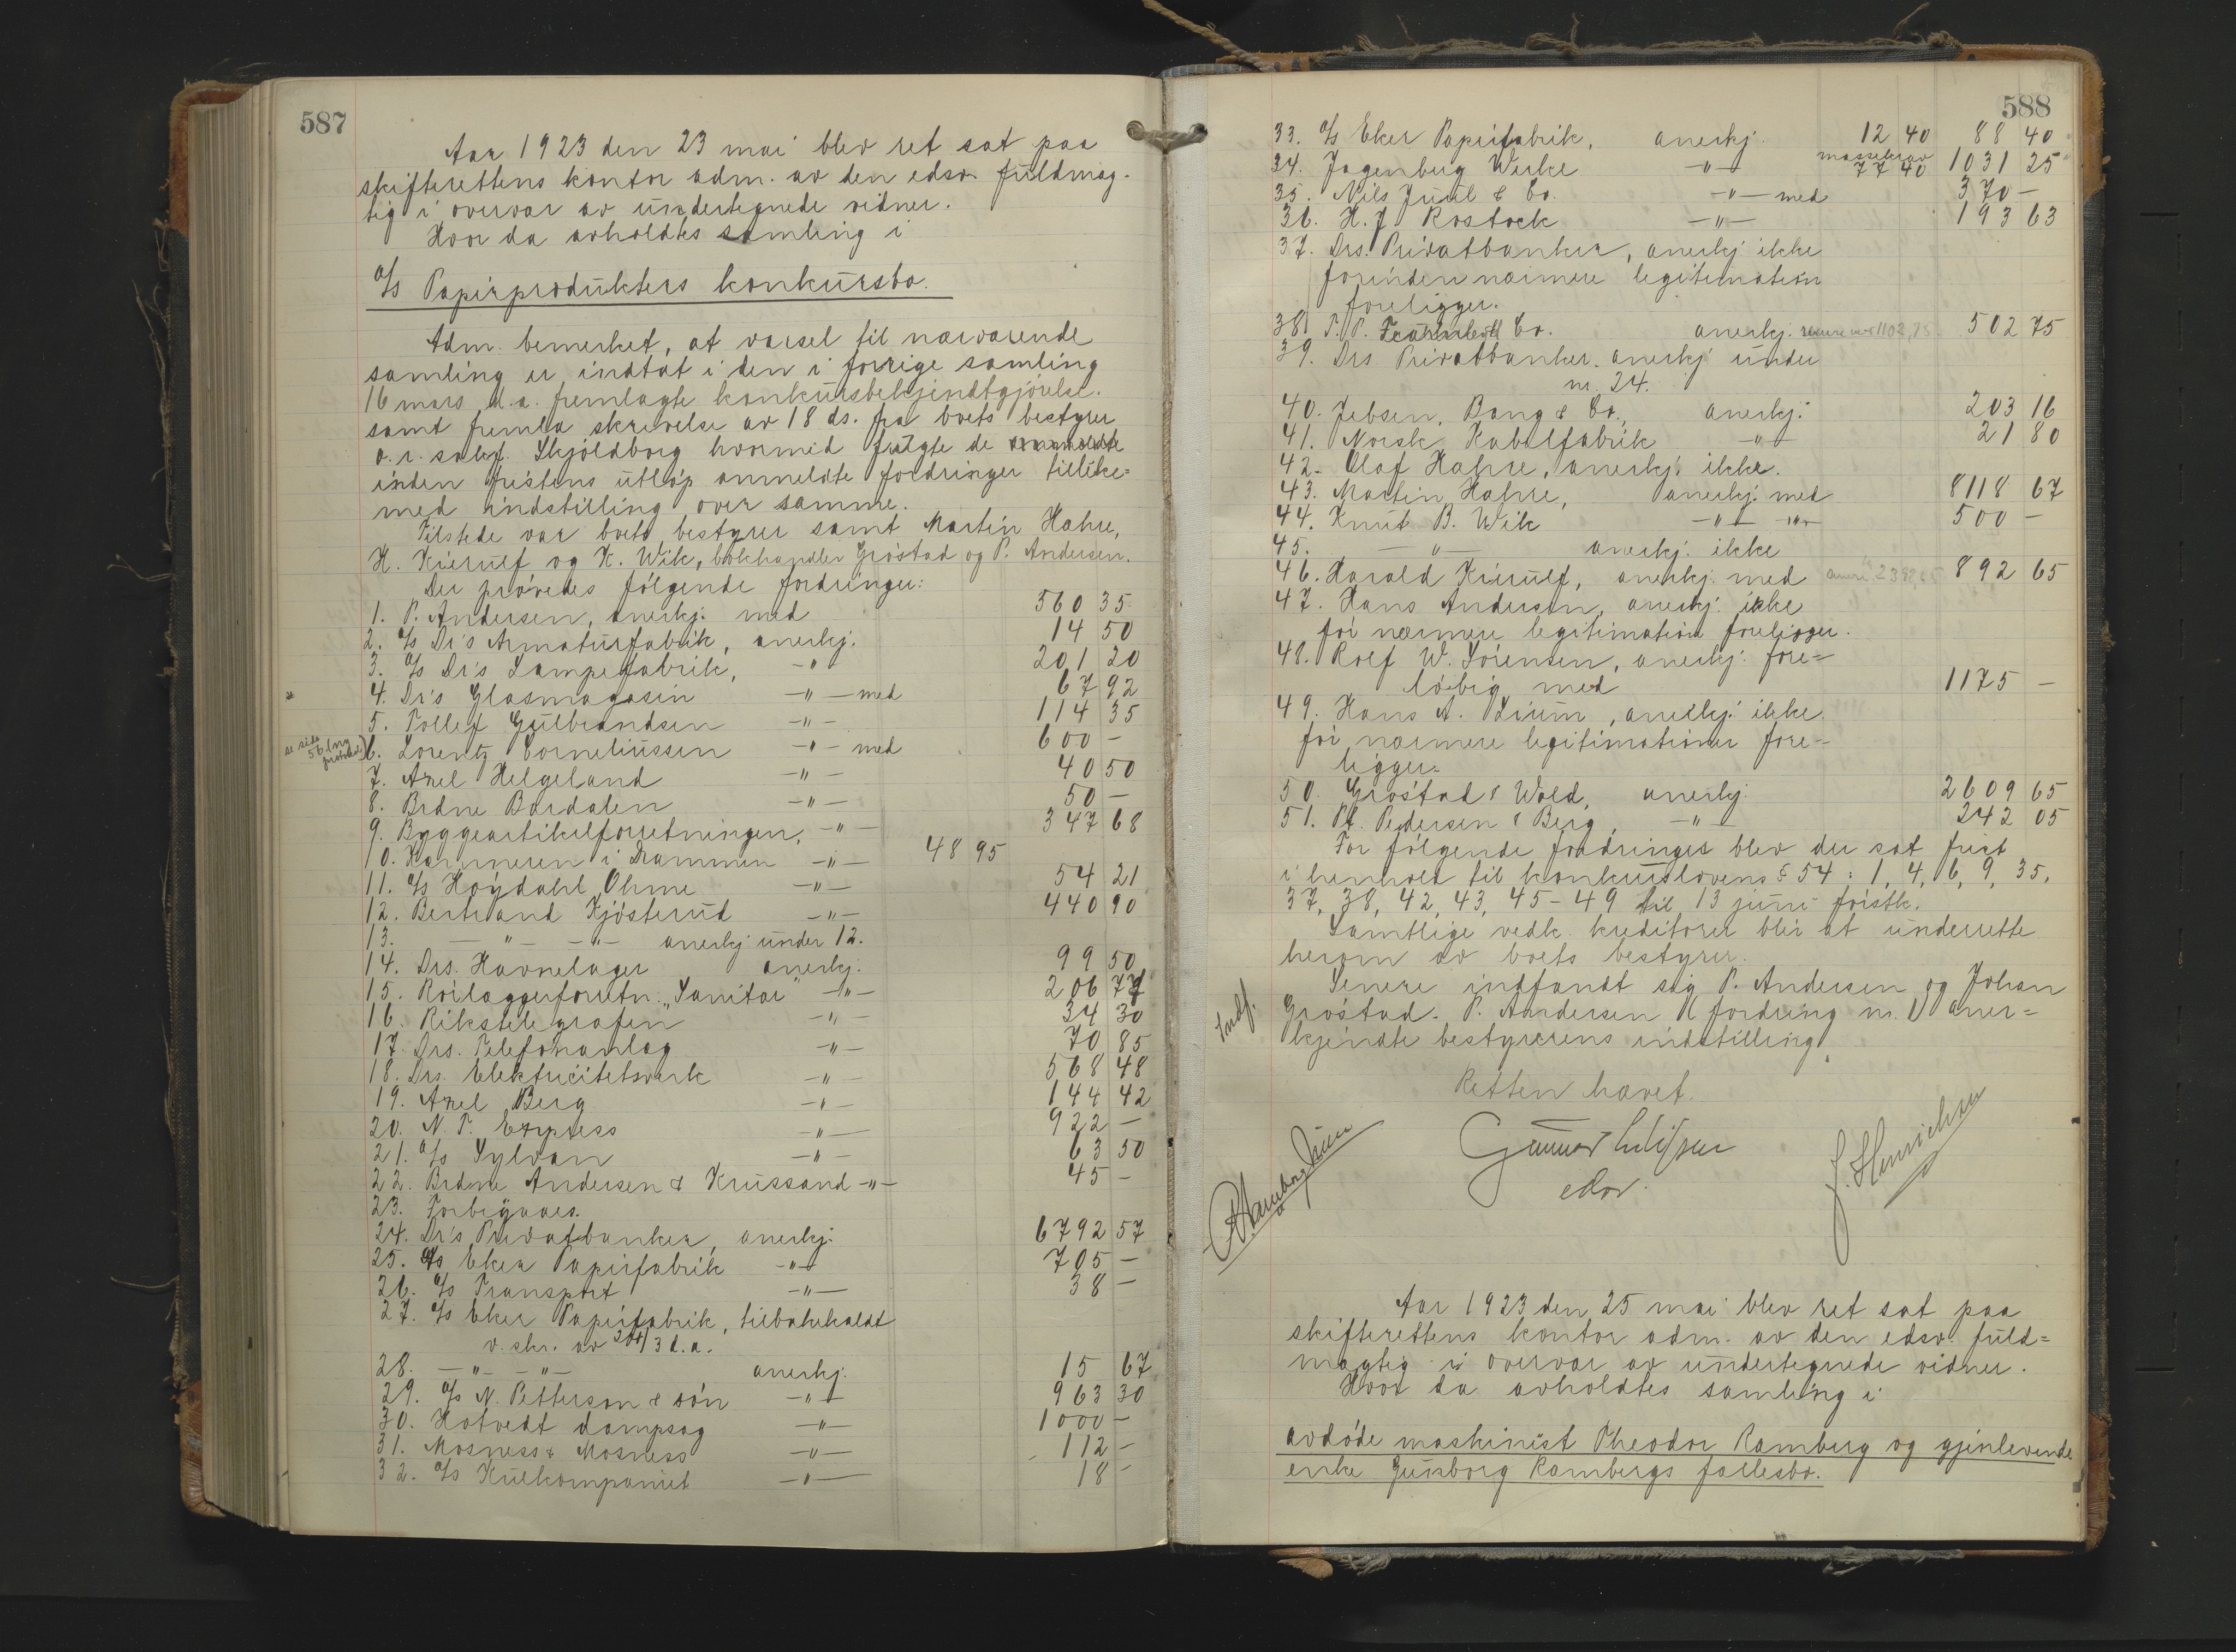 587
Aar 1923 den 23 mai blev ret sat paa
skifterettens kontor adm. av den edsv. fuldmæg-
tig i overvær av undertegnede vidner.
Hvor da avholdtes samling i
A/S Papirprodukters konkursbo.
Adm. bemerket, at varsel til nærværende
samling er indtat i den i forrige samling
16 mars d.a. fremlagte konkursbekjendtgjørelse.
samt fremla skrivelse av 18 ds. fra boets bestyrer
o.r. sakf. Skjöldborg hvormed fulgte de
inden fristens utløp anmeldte fordringer tillike-
med indstilling over samme.
Tilstede var boets bestyrer samt Martin Hahre,
H. Kierulf og K. Wik, bokhandler Gröstad og P. Andersen.
Der prøvedes følgende fordringer:
1. P. Andersen, anerkj. med 560 35
2. A/S Dr's Armaturfabrik, anerkj. 14 50
3. A/S Dr's Lampefabrik, -"- 201 20
4. Dr's Glasmagasin -"- med 67 92
5. Tollef Gulbrandsen -"- 114 35
se side 56 (ny protokol) 6. Lorentz Corneliussen -"- med 600 -
7. Axel Helgeland -"- 40 50
8. Brdne Bardalen -"- 50 -
9. Byggeartikelforretningen, -"- 347 68
10. Kæmneren i Drammen -"- 48 95
11. A/S Høydahl Ohme -"- 54 21
12. Bertrand Kjøsterud -"- 440 90
13. -"- -"- anerkj under 12.
14. Drs. Havnelager anerkj. 99 50
15. Rørlæggerforretn. "Sanitær" -"- 206 77
16. Rikstelegrafen -"- 34 30
17. Drs. Telefonanlæg -"- 70 85
18. Drs. Elektricitetsverk -"- 568 48
19. Axel Berg -"- 144 42
20. N. T. Express -"- 922 -
21. A/S Sylvan -"- 63 50
22. Brdne Andersen & Krussand -"- 45 -
23. Forbigaaes.
24. Dr's Privatbanken, anerkj. 6792 57
25. A/S Eker Papirfabrik -"- 705 -
26. A/S Transport -"- 38 -
27. A/S Eker Papirfabrik, tilbakekaldt
v. skr. av 24/3 d.a.
28. -"- -"- anerkj. 15 67
29. A/S N. Petterson & søn -"- 963 30
30. Hotvedt dampsag -"- 1000 -
31. Mosness & Mosness -"- 112 -
32. A/S Kulkompaniet -"- 18 -
588
33. A/S Eker Papirfabrik, anerkj. 12 40 88 40
34. Jagenberg Werke -"- massekrav 77 40 1031 25
35. Nils Juul & Co. -"- med 370 -
36. H. J Rostock -"- 193 63
37. Drs. Privatbanken, anerkj ikke
forinden nærmere legitimation
foreligger.
38. T. P. Co. anerkj. 502 75
39. Drs Privatbanken. anerkj under
nr. 24.
40. Jebsen, Bang & Co., anerkj. 203 16
41. Norsk Kabelfabrik -"- 21 80
42. Olaf Hahre, anerkj. ikke.
43. Martin Hahre, anerkj. med 8118 67
44. Knut B. Wik -"- -"- 500 -
45. -"- anerkj. ikke
46. Harald Kierulf, anerkj. med 892 65
47. Hans Andersen, anerkj. ikke
før nærmere legitimation foreligger.
48. Rolf W. Sørensen, anerkj. fore-
løbig med 1175 -
49. Hans A. Lium, anerkj. ikke
før nærmere legitimationer fore-
ligger.
50. Grøstad & Wold, anerkj. 2609 65
51. Pt. Pedersen & Berg, -"- 242 05
For følgende fordringer blev der sat frist
i henhold til konkurslovens § 54: 1, 4, 6, 9, 35,
37, 38, 42, 43, 45-49 til 13 juni førstk.
Samtlige vedk. kreditorer blir at underrette
herom av boets bestyrer.
Senere indfandt sig P. Andersen og Johan
Indf. Grøstad. P. Andersen (fordring nr. 1) aner-
kjendte bestyrerens indstilling.
Retten hævet.
Gunnar
edsv.
J. Henrichsen
Aar 1923 den 25 mai blev ret sat paa
skifterettens kontor adm. av den edsv. fuld-
mægtig i overvær av undertegnede vidner.
Hvor da avholdtes samling i
avdøde maskinist Theodor Ramberg og gjenlevende
enke Gunborg Rambergs fællesbo.